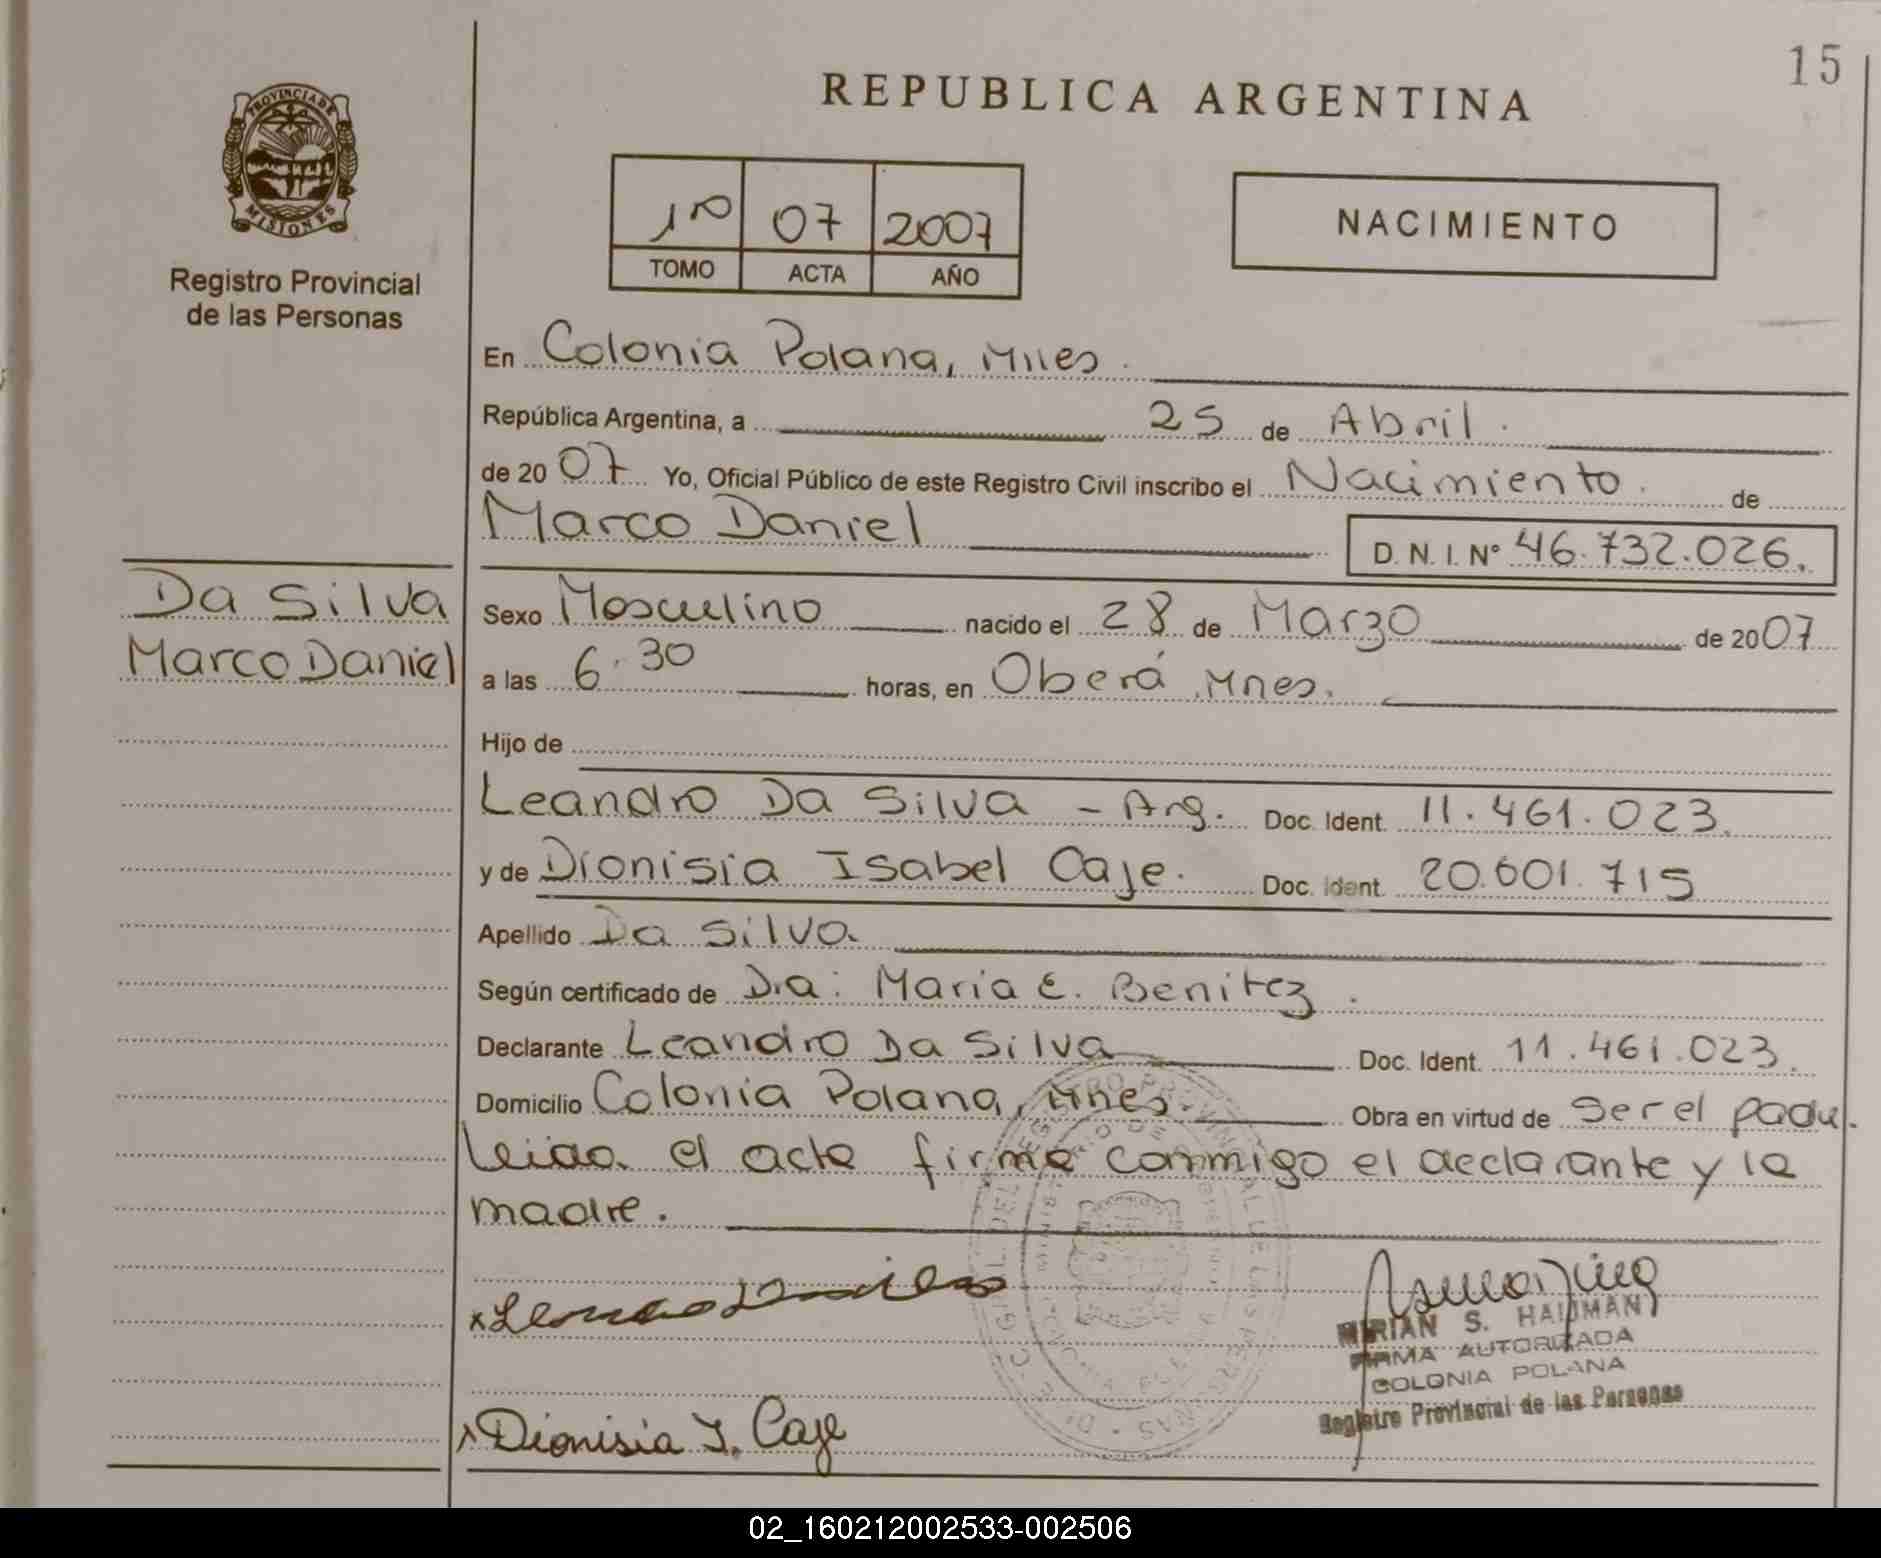 15
REPUBLICA ARGENTINA
PROVINCIA DE
MISIONES
Registro Provincial
de las Personas
1º 07 2007
TOMO ACTA AÑO
NACIMIENTO
En Colonia Polana, Mnes.
República Argentina, a 25 de Abril.
de 2007 Yo, Oficial Público de este Registro Civil inscribo el Nacimiento. de
Marco Daniel D. N. I. Nº 46.732.026.
Da Silva
Marco Daniel
Sexo Masculino nacido el 28 de Marzo de 2007
a las 6.30 horas, en Oberá, Mnes.
Hijo de
Leandro Da Silva - Arg. Doc. Ident. 11.461.023.
y de Dionisia Isabel Caje. Doc. Ident. 20.601.715
Apellido Da Silva
Según certificado de Dra: Maria E. Benitez.
Declarante Leandro Da Silva Doc. Ident. 11.461.023.
Domicilio Colonia Polana, Mnes. Obra en virtud de Ser el padre.
Leida el acta firma conmigo el declarante y la
madre.
MIRIAN S. HAUMAN
FIRMA AUTORIZADA
COLONIA POLANA
Registro Provincial de las Personas
x Dionisia I. Caje
02_160212002533-002506